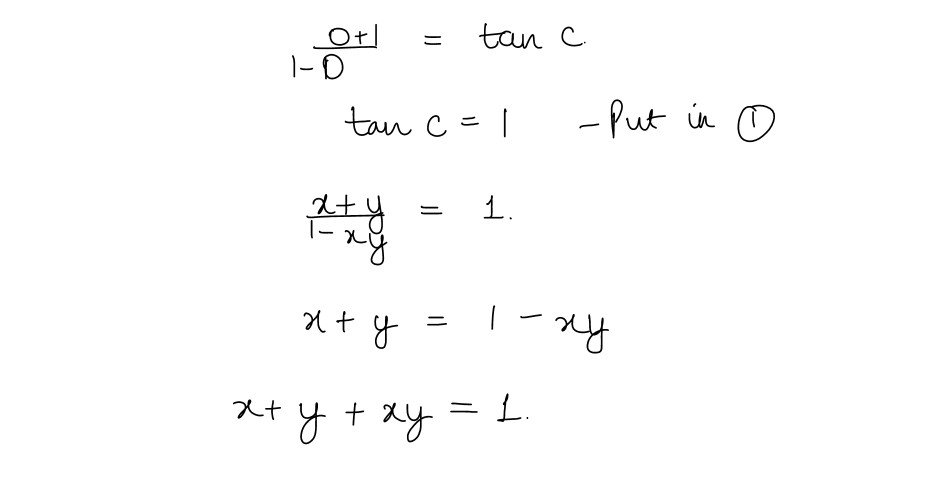 0+1/1-0 = tan c.
tan c = 1 - Put in ①
x+y/1-xy = 1.
x + y = 1 - xy
x + y + xy = 1.